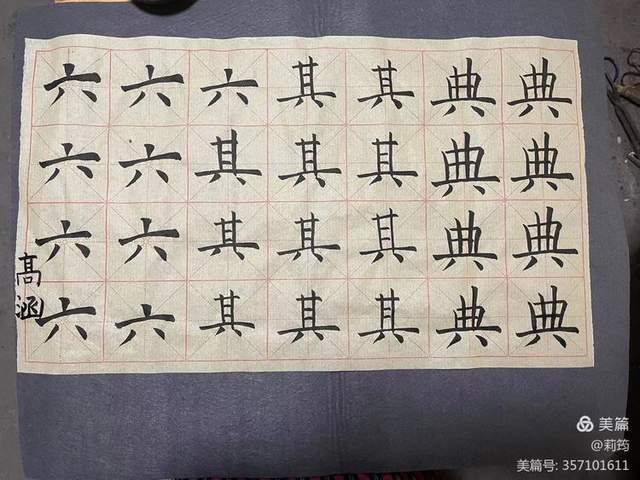 六六六其其典典
六六其其其典典
六六其其其典典
六六其其其典典
髙涵
美篇
@莉筠
美篇号: 357101611